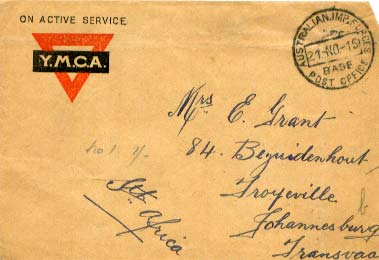 ON ACTIVE SERVICE.
Y.M.C.A.
AUSTRALIAN.IMP.FORCES
21·NO·15
BASE
POST OFFICE
Mrs E. Grant
84. Bezuidenhout
Troyeville
Johannesburg
Transvaa
Sth Africa